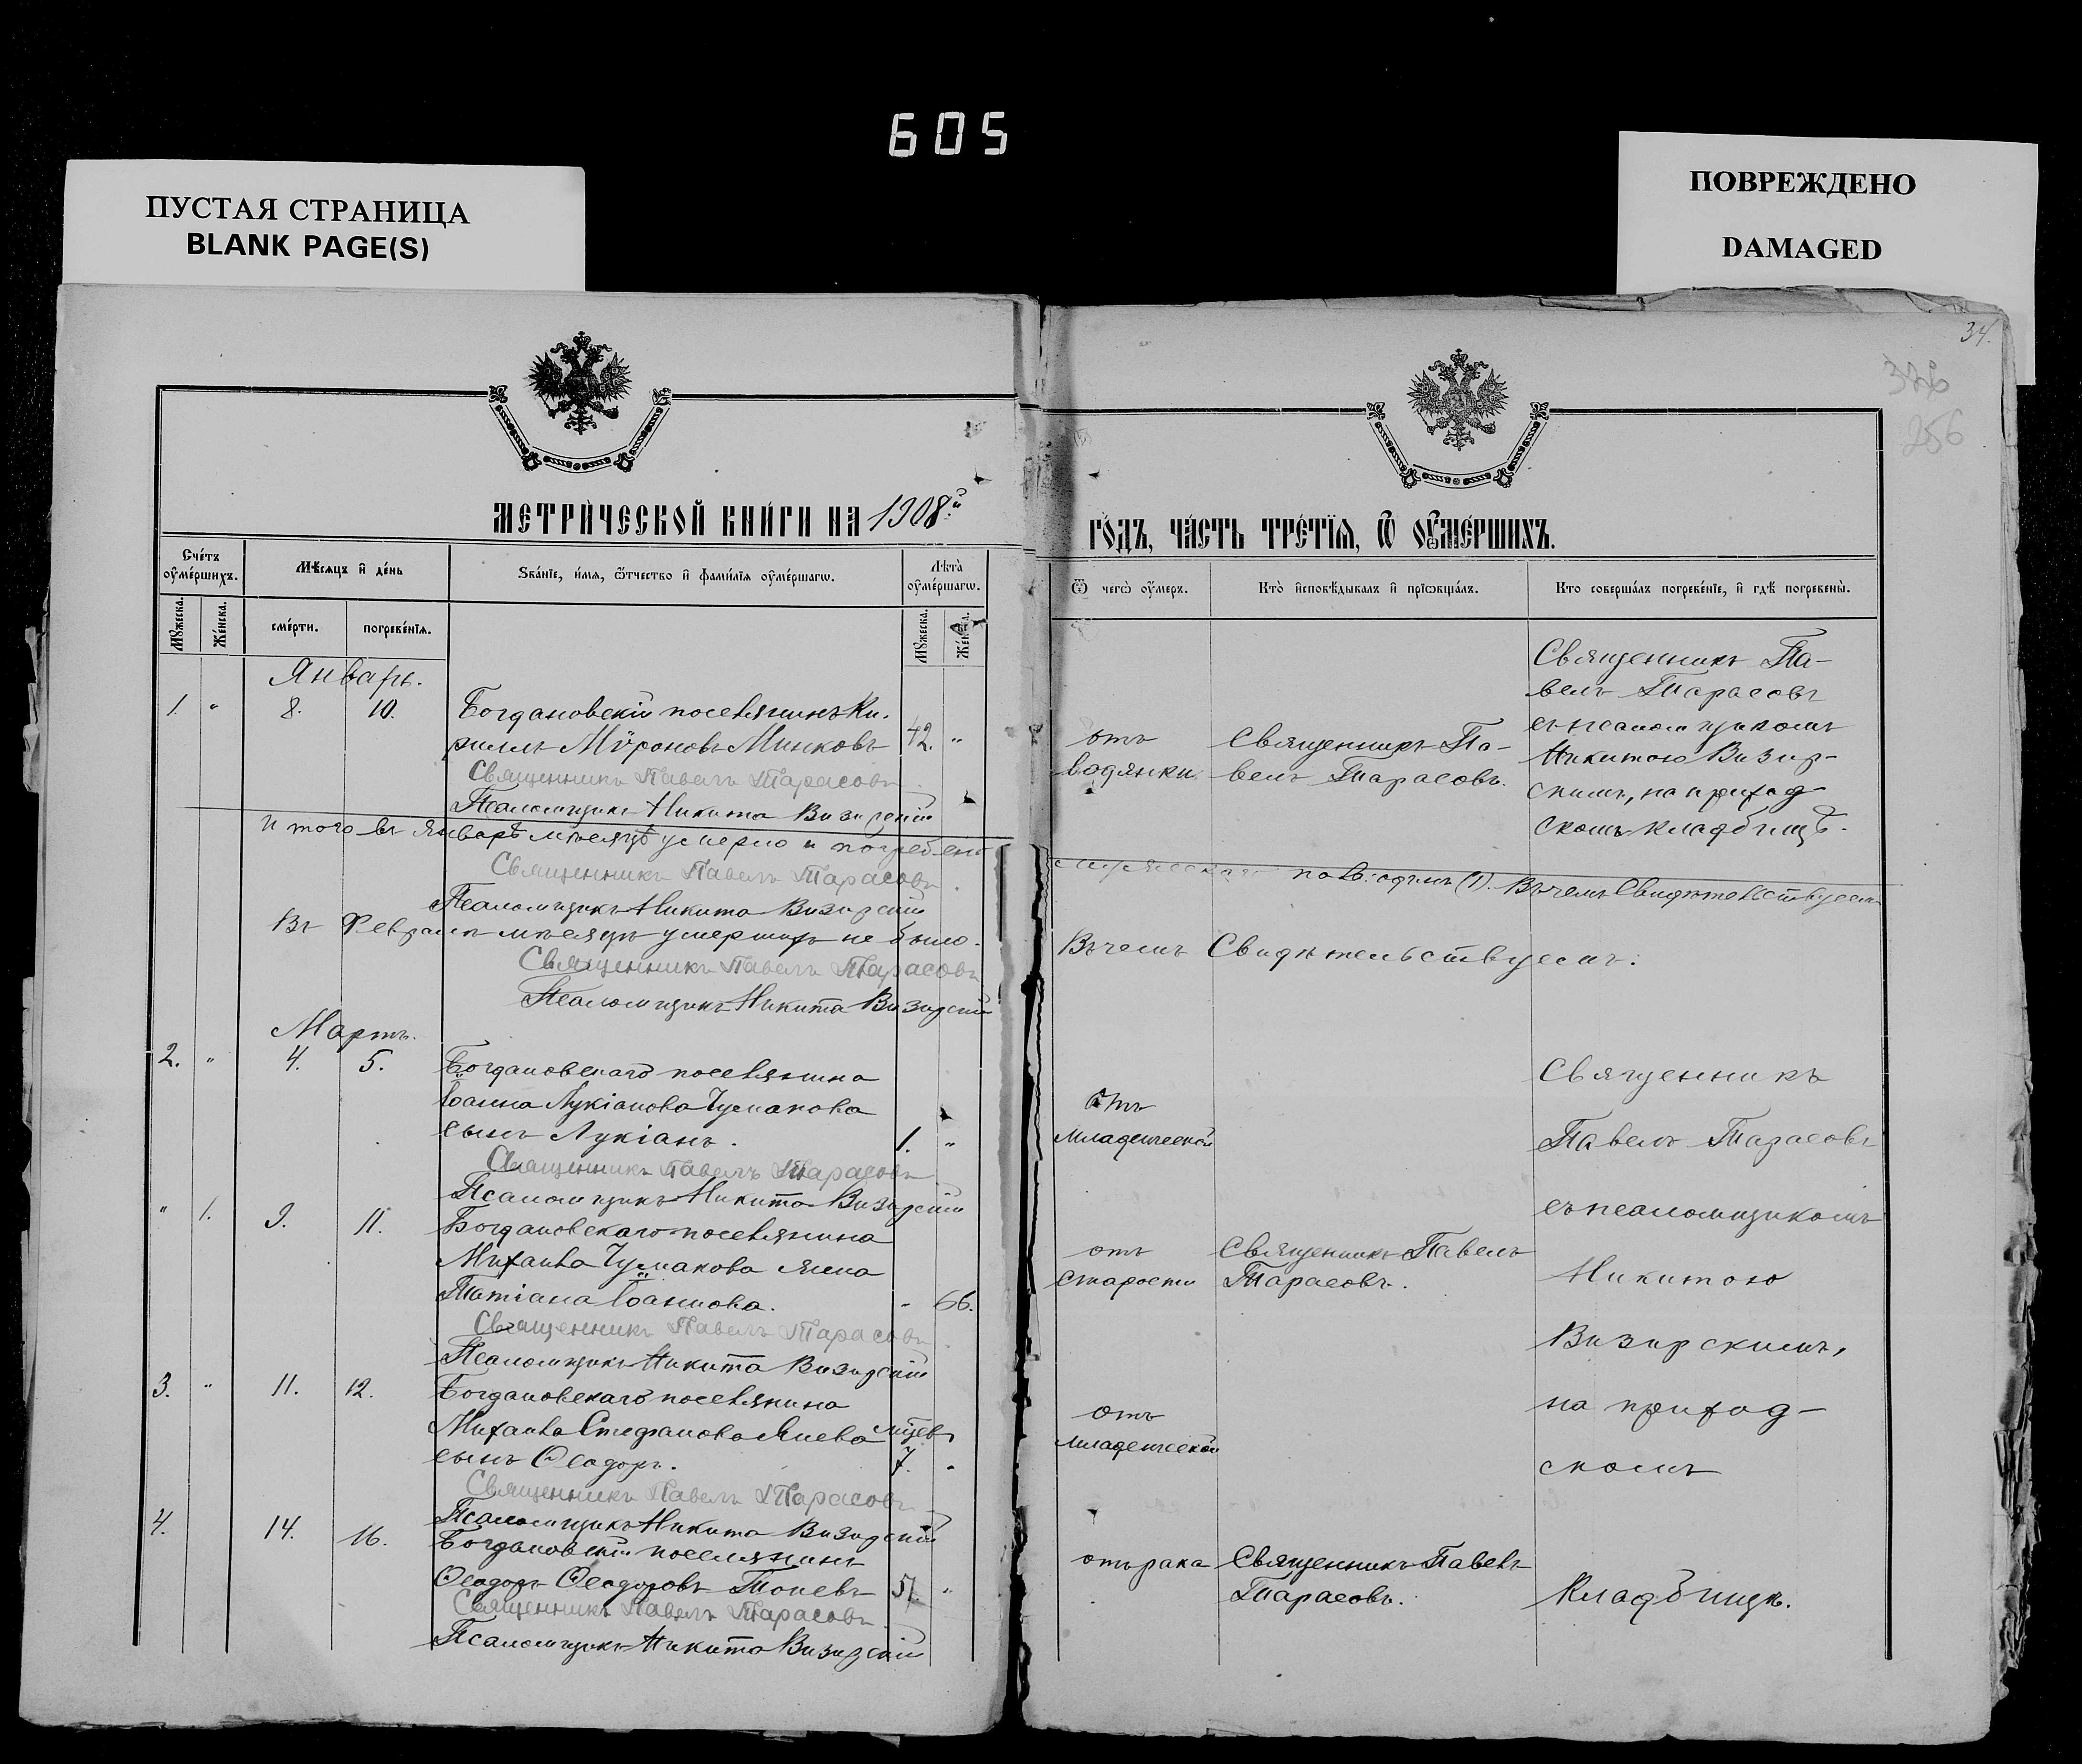 605
ПУСТАЯ СТРАНИЦА
BLANK PAGE(S)
ПОВРЕЖДЕНО
DAMAGED
34.
256
МЕТРИЧЕСКОЙ КНИГИ НА 1908й
Счетъ оумершихъ.
Мужеска.
Женска.
Мѣсяцъ и день
смерти.
погребенїя.
Званїе, имя, ѿчество и фамилїя оумершагѡ.
Лѣта оумершагѡ.
Мужеска.
Женска.
Январь.
1. " 8. 10. Богдановскій поселянинъ Ки-
риллъ Мѵроновъ Минковъ 42. "
Священникъ Павелъ Тарасовъ
Псаломщикъ Никита Визирскій
Итого въ Январѣ мѣсяцѣ умерло и погребено
Священникъ Павелъ Тарасовъ
Псаломщикъ Никита Визирскій
Въ Февралѣ мѣсяцѣ умершихъ не было.
Священникъ Павелъ Тарасовъ
Псаломщикъ Никита Визирскій
Мартъ.
2. " 4. 5. Богдановскаго поселянина
Іоанна Лукіанова Чумакова
сынъ Лукіанъ. 1. "
Священникъ Павелъ Тарасовъ
Псаломщикъ Никита Визирскій
" 1. 9. 11. Богдановскаго поселянина
Михаила Чумакова жена
Татіана Іоаннова. " 66.
Священникъ Павелъ Тарасовъ
Псаломщикъ Никита Визирскій
3. " 11. 12. Богдановскаго поселянина
Михаила Стефанова
сынъ Ѳеодоръ. 7. "
Священникъ Павелъ Тарасовъ
Псаломщикъ Никита Визирскій
4. 14. 16. Богдановскій поселянинъ
Ѳеодоръ Ѳеодоровъ 51. "
Священникъ Павелъ Тарасовъ
Псаломщикъ Никита Визирскій
ГОДЪ, ЧАСТЬ ТРЕТЇЯ, Ѡ ОУМЕРШИХЪ.
Ѿ чегѡ оумеръ.
Кто исповѣдывалъ и прїѡбщалъ.
Кто совершалъ погребенїе, и гдѣ погребены.
отъ
водянки
Священникъ Па-
велъ Тарасовъ.
Священникъ Па-
велъ Тарасовъ
съ псаломщикомъ
Никитою Визир-
скимъ, на приход-
скомъ кладбищѣ.
мужескаго пола: одинъ (1). Въ чемъ Свидѣтельствуемъ
Въ чемъ Свидѣтельствуемъ:
отъ
младенческой
отъ
старости
Священникъ Павелъ
Тарасовъ.
отъ
младенческой
отъ рака
Священникъ Павелъ
Тарасовъ.
Священникъ
Павелъ Тарасовъ
съ псаломщикомъ
Никитою
Визирскимъ,
на приход-
скомъ
Кладбищѣ.